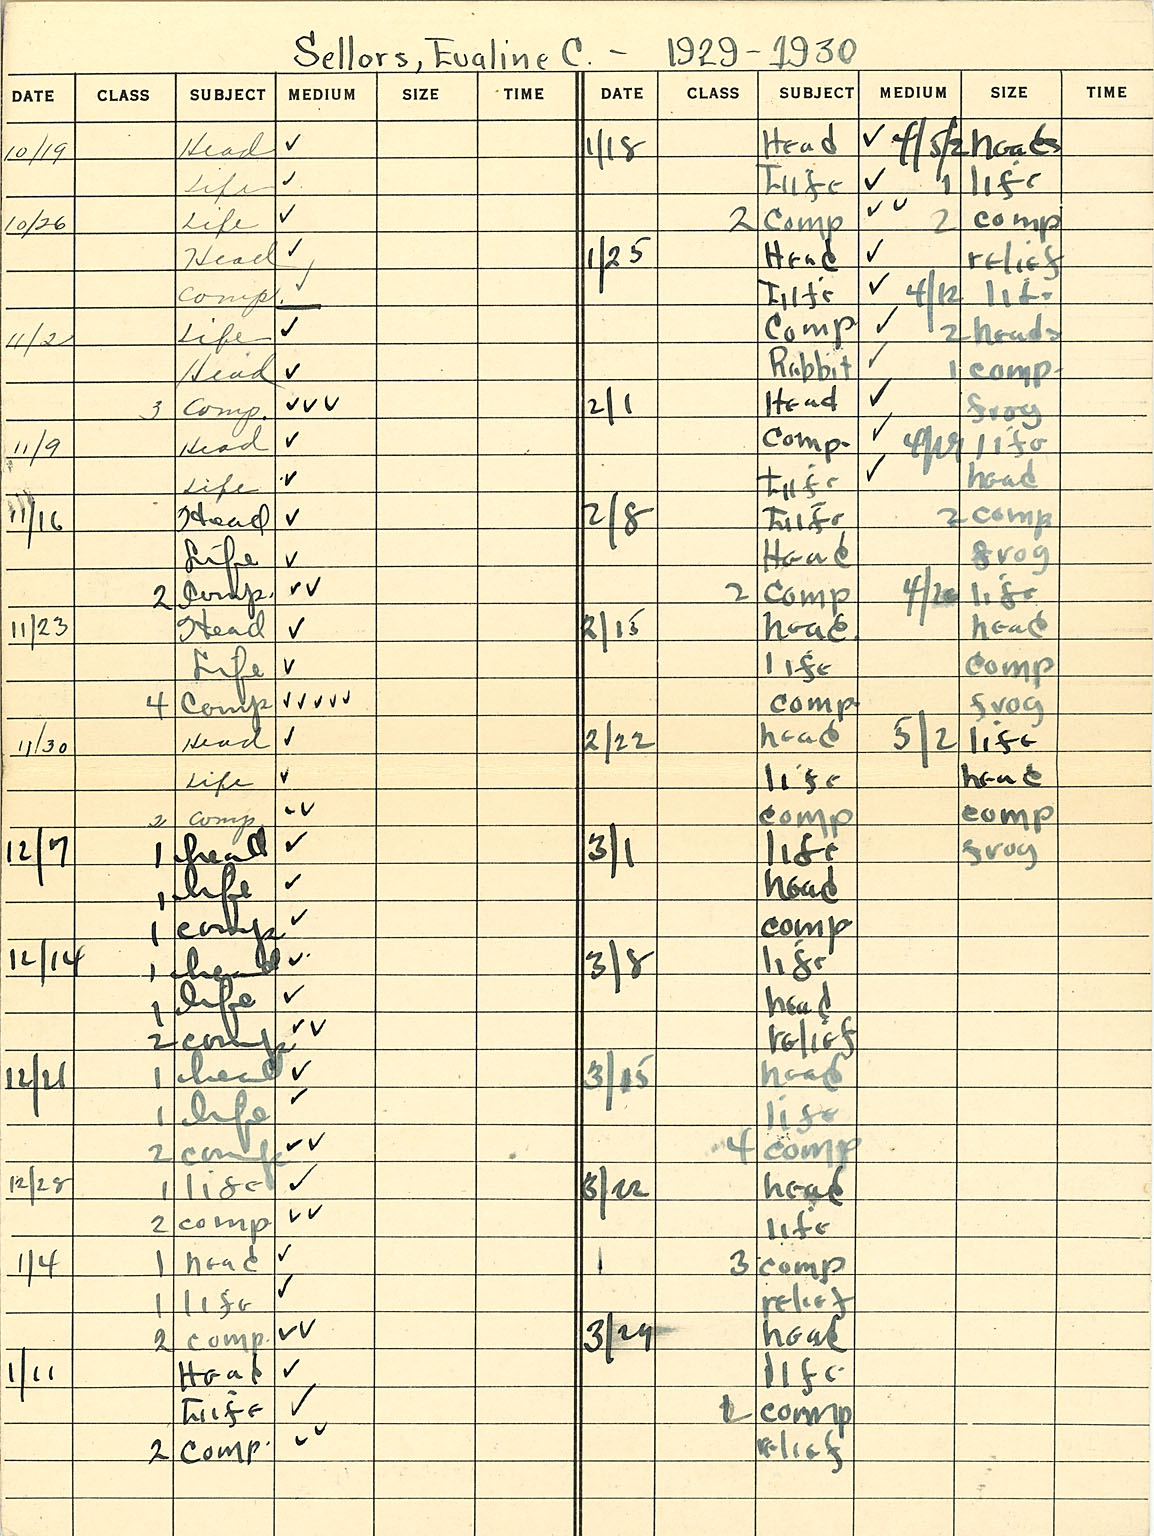 Sellors, Evaline C. - 1929-1930
DATE CLASS SUBJECT MEDIUM SIZE TIME DATE CLASS SUBJECT MEDIUM SIZE TIME
10/19 Head ✓ 1/18 Head ✓ 4/5/2 heads
Life ✓ Life ✓ 1 life
10/26 Life ✓ 2 Comp ✓✓ 2 comp
Head ✓ 1/25 Head ✓ relief
Comp. ✓ Life ✓ 4/12 life
11/2 Life ✓ Comp ✓ 2 heads
Head ✓ Rabbit ✓ 1 comp.
3 Comp. ✓✓✓ 2/1 Head ✓ frog
11/9 Head ✓ Comp. ✓ 4/19 life
Life ✓ Life ✓ head
11/16 Head ✓ 2/8 Life 2 comp
Life ✓ Head frog
2 Comp. ✓✓ 2 Comp 4/26 life
11/23 Head ✓ 2/15 head. head
Life ✓ life comp
4 Comp ✓✓✓✓✓ comp. frog
11/30 Head ✓ 2/22 head 5/2 life
Life ✓ life head
2 Comp. ✓✓ comp comp
12/7 1 head ✓ 3/1 life frog
1 life ✓ head
1 comp ✓ comp
12/14 1 head ✓ 3/8 life
1 life ✓ head
2 comp. ✓✓ relief
12/21 1 head ✓ 3/15 head
1 life ✓ life
2 comp ✓✓ 4 comp
12/28 1 life ✓ 3/22 head
2 comp ✓✓ life
1/4 1 head ✓ 3 comp
1 life ✓ relief
2 comp. ✓✓ 3/29 head
1/11 Head ✓ life
Life ✓ 2 comp
2 Comp. ✓✓ relief